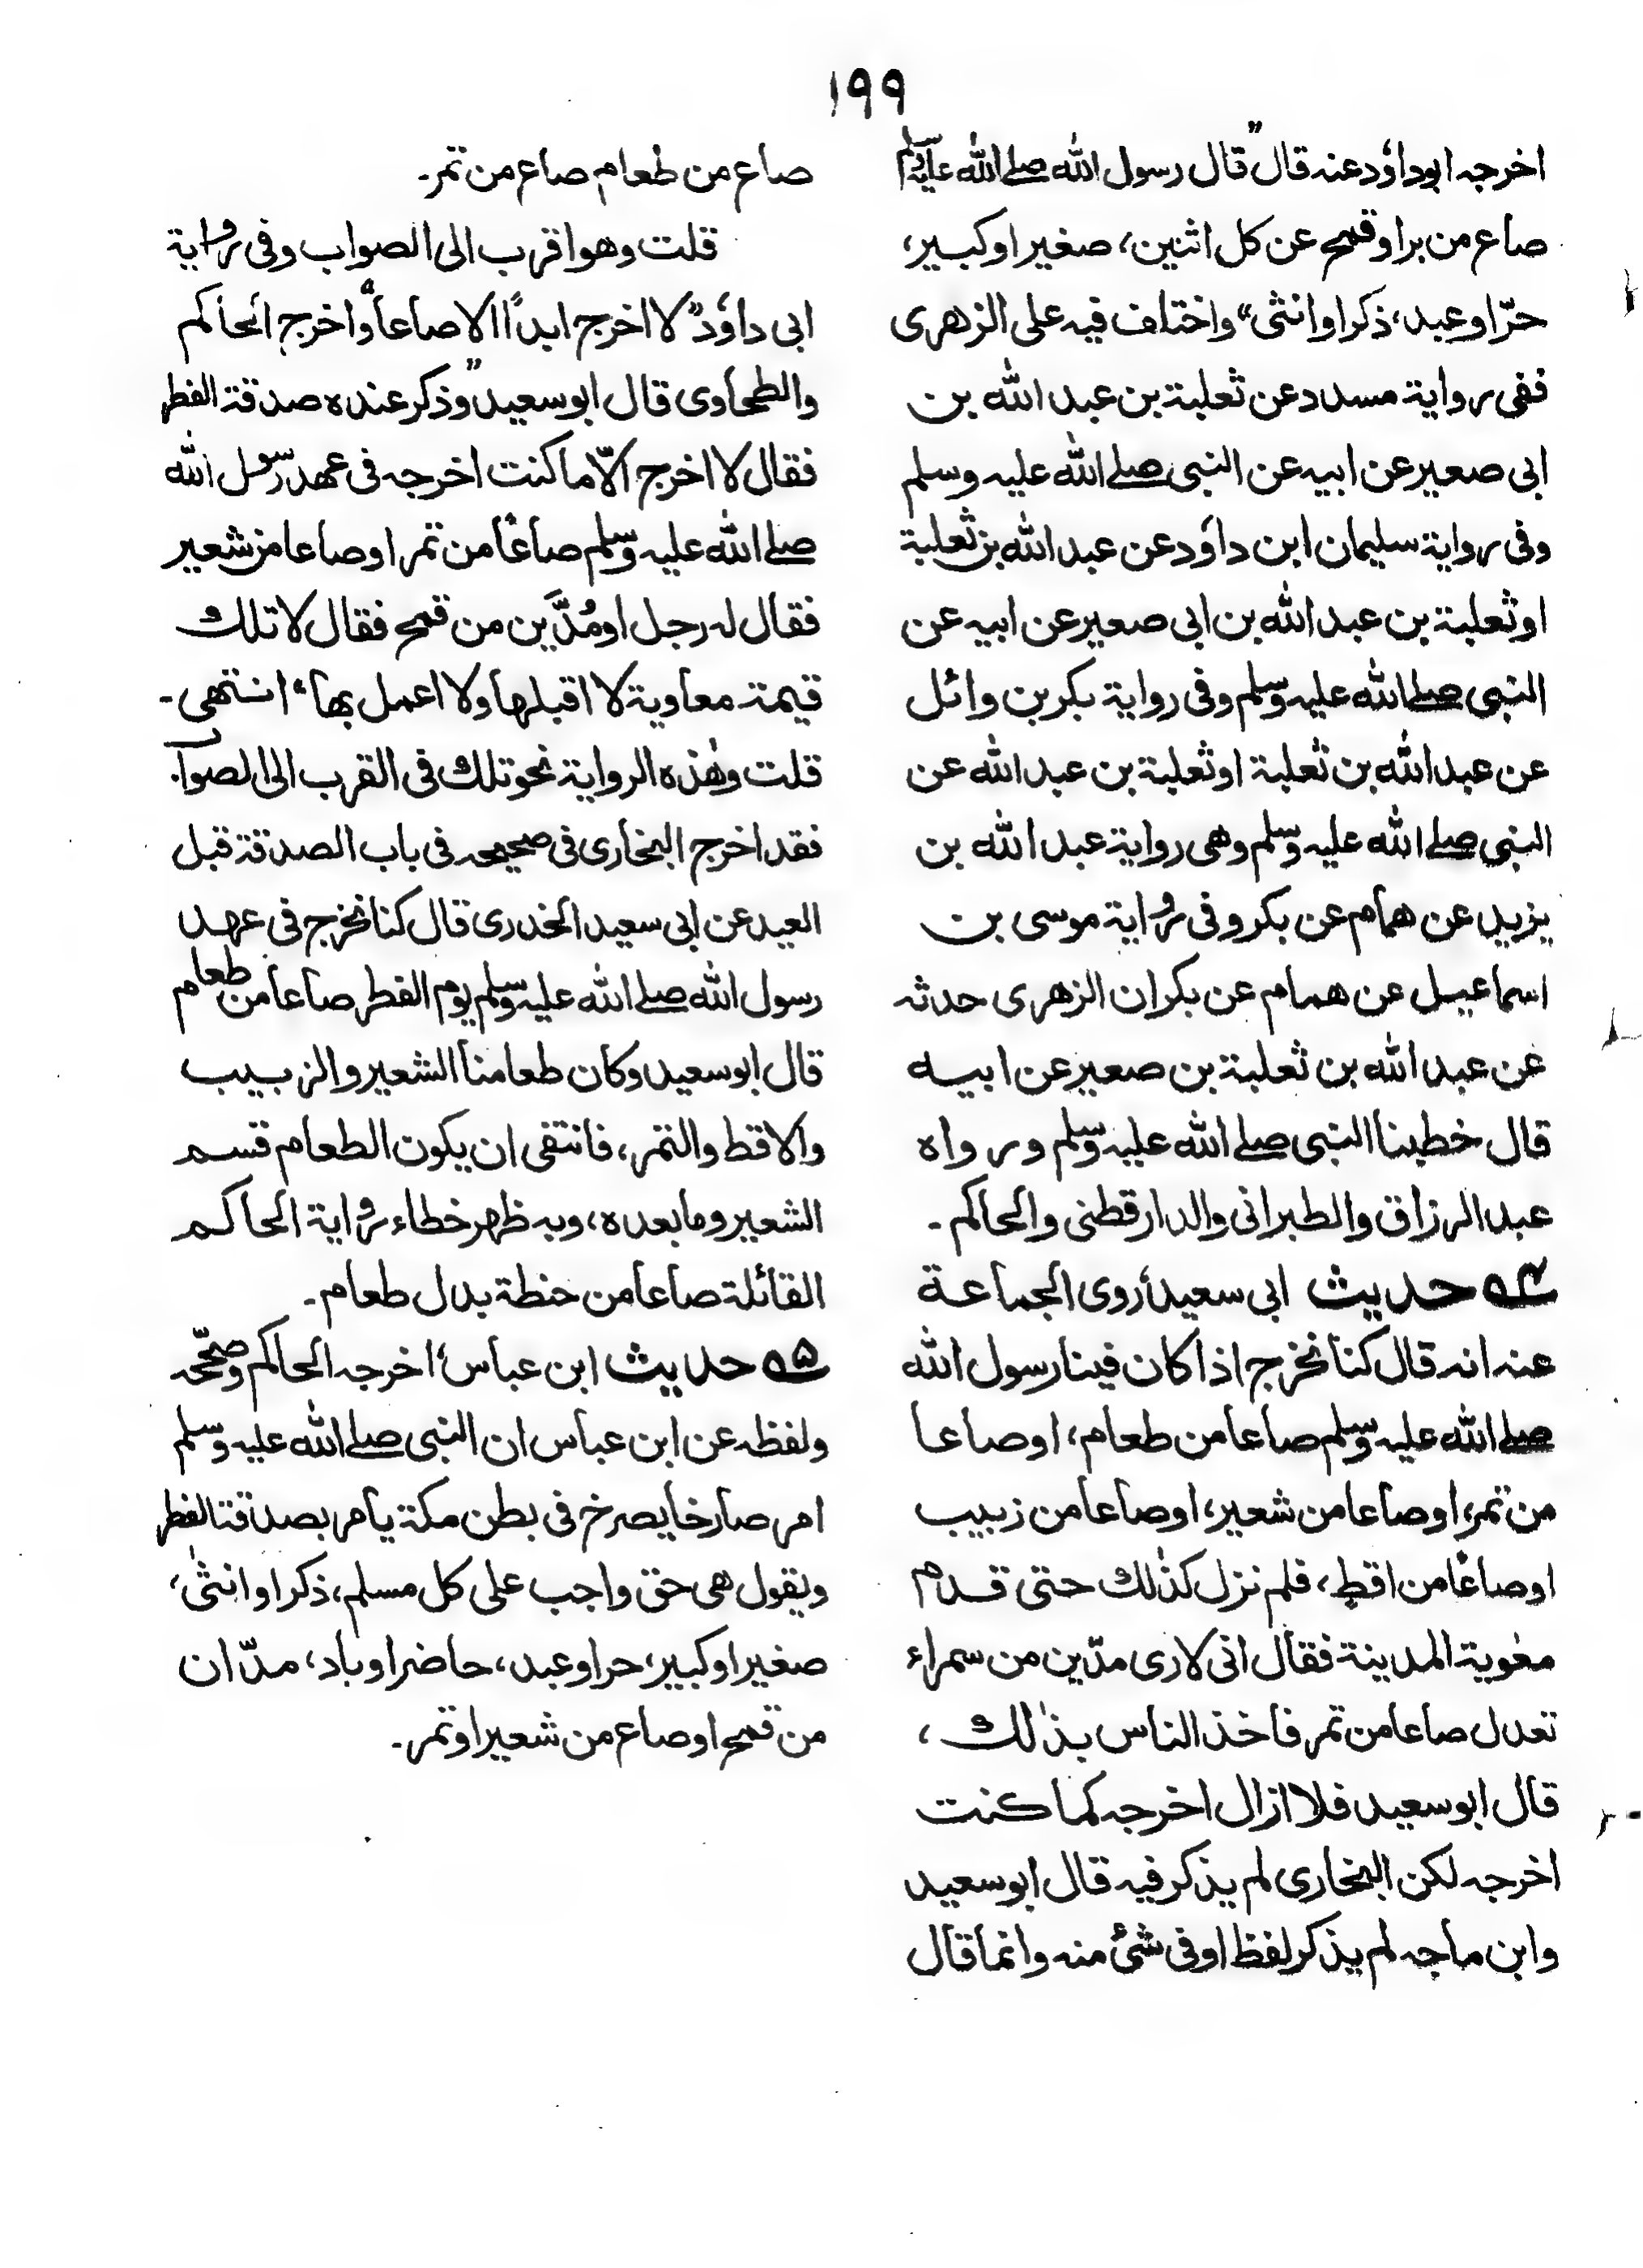 ١٩٩
اخرجه ابوداؤد عنه قال "قال رسول الله صلے الله عليه وسلم
صاع من براو قمح عن كل اثنين، صغير اوكبير،
حرّا وعبد، ذكرا وانثى" واختلف فيه على الزهرى
ففى رواية مسدد عن ثعلبة بن عبد الله بن
ابى صعير عن ابيه عن النبى صلے الله عليه وسلم
وفى رواية سليمان ابن داؤد عن عبد الله بن ثعلبة
او ثعلبة بن عبد الله بن ابى صعير عن ابيه عن
النبى صلے الله عليه وسلم وفى رواية بكر بن وائل
عن عبد الله بن ثعلبة او ثعلبة بن عبد الله عن
النبى صلے الله عليه وسلم وهى رواية عبد الله بن
يزيد عن همام عن بكر وفى رواية موسى بن
اسماعيل عن همام عن بكر ان الزهرى حدثه
عن عبد الله بن ثعلبة بن صعير عن ابيه
قال خطبنا النبى صلے الله عليه وسلم ورواه
عبد الرزاق والطبرانى والدارقطنى والحاكم۔
۵۴ حديث ابى سعيدؓ روى الجماعة
عنه انه قال كنا نخرج اذا كان فينا رسول الله
صلے الله عليه وسلم صاعا من طعام، اوصاعا
من تمر، اوصاعا من شعير، اوصاعا من زبيب
اوصاعًا من اقط، فلم نزل كذٰلك حتى قدم
معٰوية المدينة فقال انى لارى مدّين من سمراء
تعدل صاعا من تمر فاخذ الناس بذٰلك،
قال ابوسعيد فلا ازال اخرجه كما كنت
اخرجه لكن البخارى لم يذكر فيه قال ابوسعيد
وابن ماجه لم يذكر لفظ او فى شئ منه وانما قال
صاع من طعام صاع من تمر۔
قلت وهو اقرب الى الصواب وفى رواية
ابى داؤد "لا اخرج ابدًا الا صاعا" واخرج الحاكم
والطحاوى قال ابوسعيد "وذكر عنده صدقة الفطر
فقال لا اخرج الّا ما كنت اخرجه فى عهد رسول الله
صلے الله عليه وسلم صاعًا من تمر اوصاعا من شعير
فقال له رجل او مُدَّين من قمح فقال لا تلك
قيمة معاوية لا اقبلها ولا اعمل بها" انتهى۔
قلت وهٰذه الرواية نحو تلك فى القرب الى الصواب.
فقد اخرج البخارى فى صحيحه فى باب الصدقة قبل
العيد عن ابى سعيد الخدرى قال كنا نخرج فى عهد
رسول الله صلے الله عليه وسلم يوم الفطر صاعا من طعام
قال ابوسعيد وكان طعامنا الشعير والزبيب
والاقط والتمر، فانتفى ان يكون الطعام قسم
الشعير وما بعده، وبه ظهر خطاء رواية الحاكم
القائلة صاعا من حنطة بدل طعام۔
۵۵ حديث ابن عباسؓ اخرجه الحاكم وصحّحه
ولفظه عن ابن عباس ان النبى صلے الله عليه وسلم
امر صارخا يصرخ فى بطن مكة يامر بصدقة الفطر
ويقول هى حق واجب على كل مسلم، ذكرا وانثٰى،
صغيرا وكبير، حرا وعبد، حاضرا وباد، مدّان
من قمح اوصاع من شعير اوتمر۔